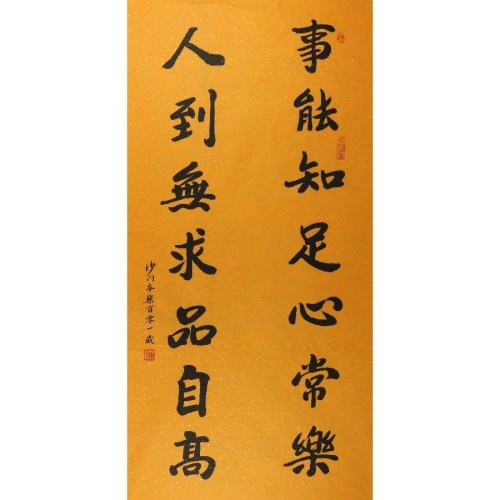 事能知足心常樂
人到無求品自高
沙门本樂百零一歲